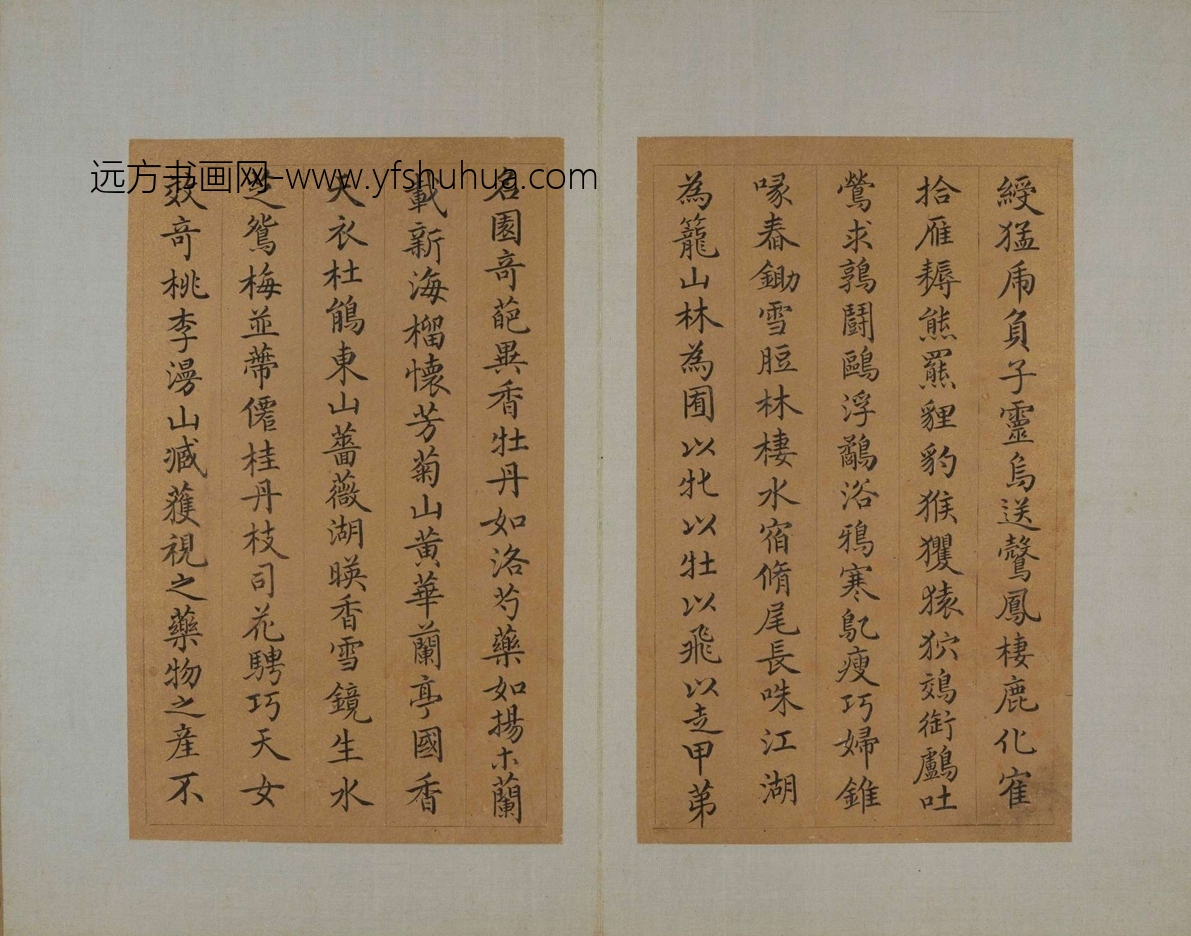 綬猛虎負子靈烏送鷟鳳棲鹿化寉
拾雁耨熊羆貍豹猴玃猿狖鵁銜鸕吐
鶯求鶉鬪鷗浮鷸浴鴉寒鳦瘦巧婦錐
喙舂鋤雪脰林棲水宿脩尾長咮江湖
為籠山林為囿以牝以牡以飛以走甲第
名園奇葩異香牡丹如洛芍藥如揚木蘭
載新海榴懷芳菊山黃華蘭亭國香
天衣杜鵑東山薔薇湖暎香雪鏡生水
芝鴛梅並蔕僊桂丹枝司花騁巧天女
效奇桃李漫山臧蒦視之藥物之産不
远方书画网-www.yfshuhua.com